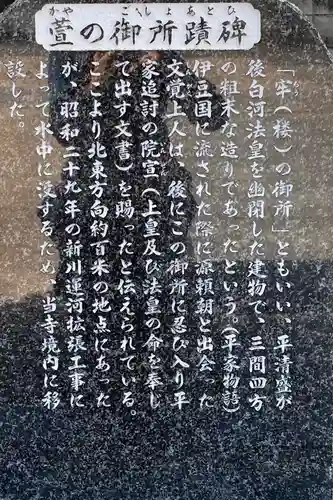 萱の御所蹟碑
かや ごしょあとひ
「牢(楼)の御所」ともいい、平清盛が
後白河法皇を幽閉した建物で、三間四方
の粗末な造りであったという。(平家物語)
伊豆国に流された際に源頼朝と出会った
文覚上人は、後にこの御所に忍び入り平
家追討の院宣(上皇及び法皇の命を奉じ
て出す文書)を賜ったと伝えられている。
ここより北東方向約百米の地点にあった
が、昭和二十九年の新川運河拡張工事に
よって水中に没するため、当寺境内に移
設した。